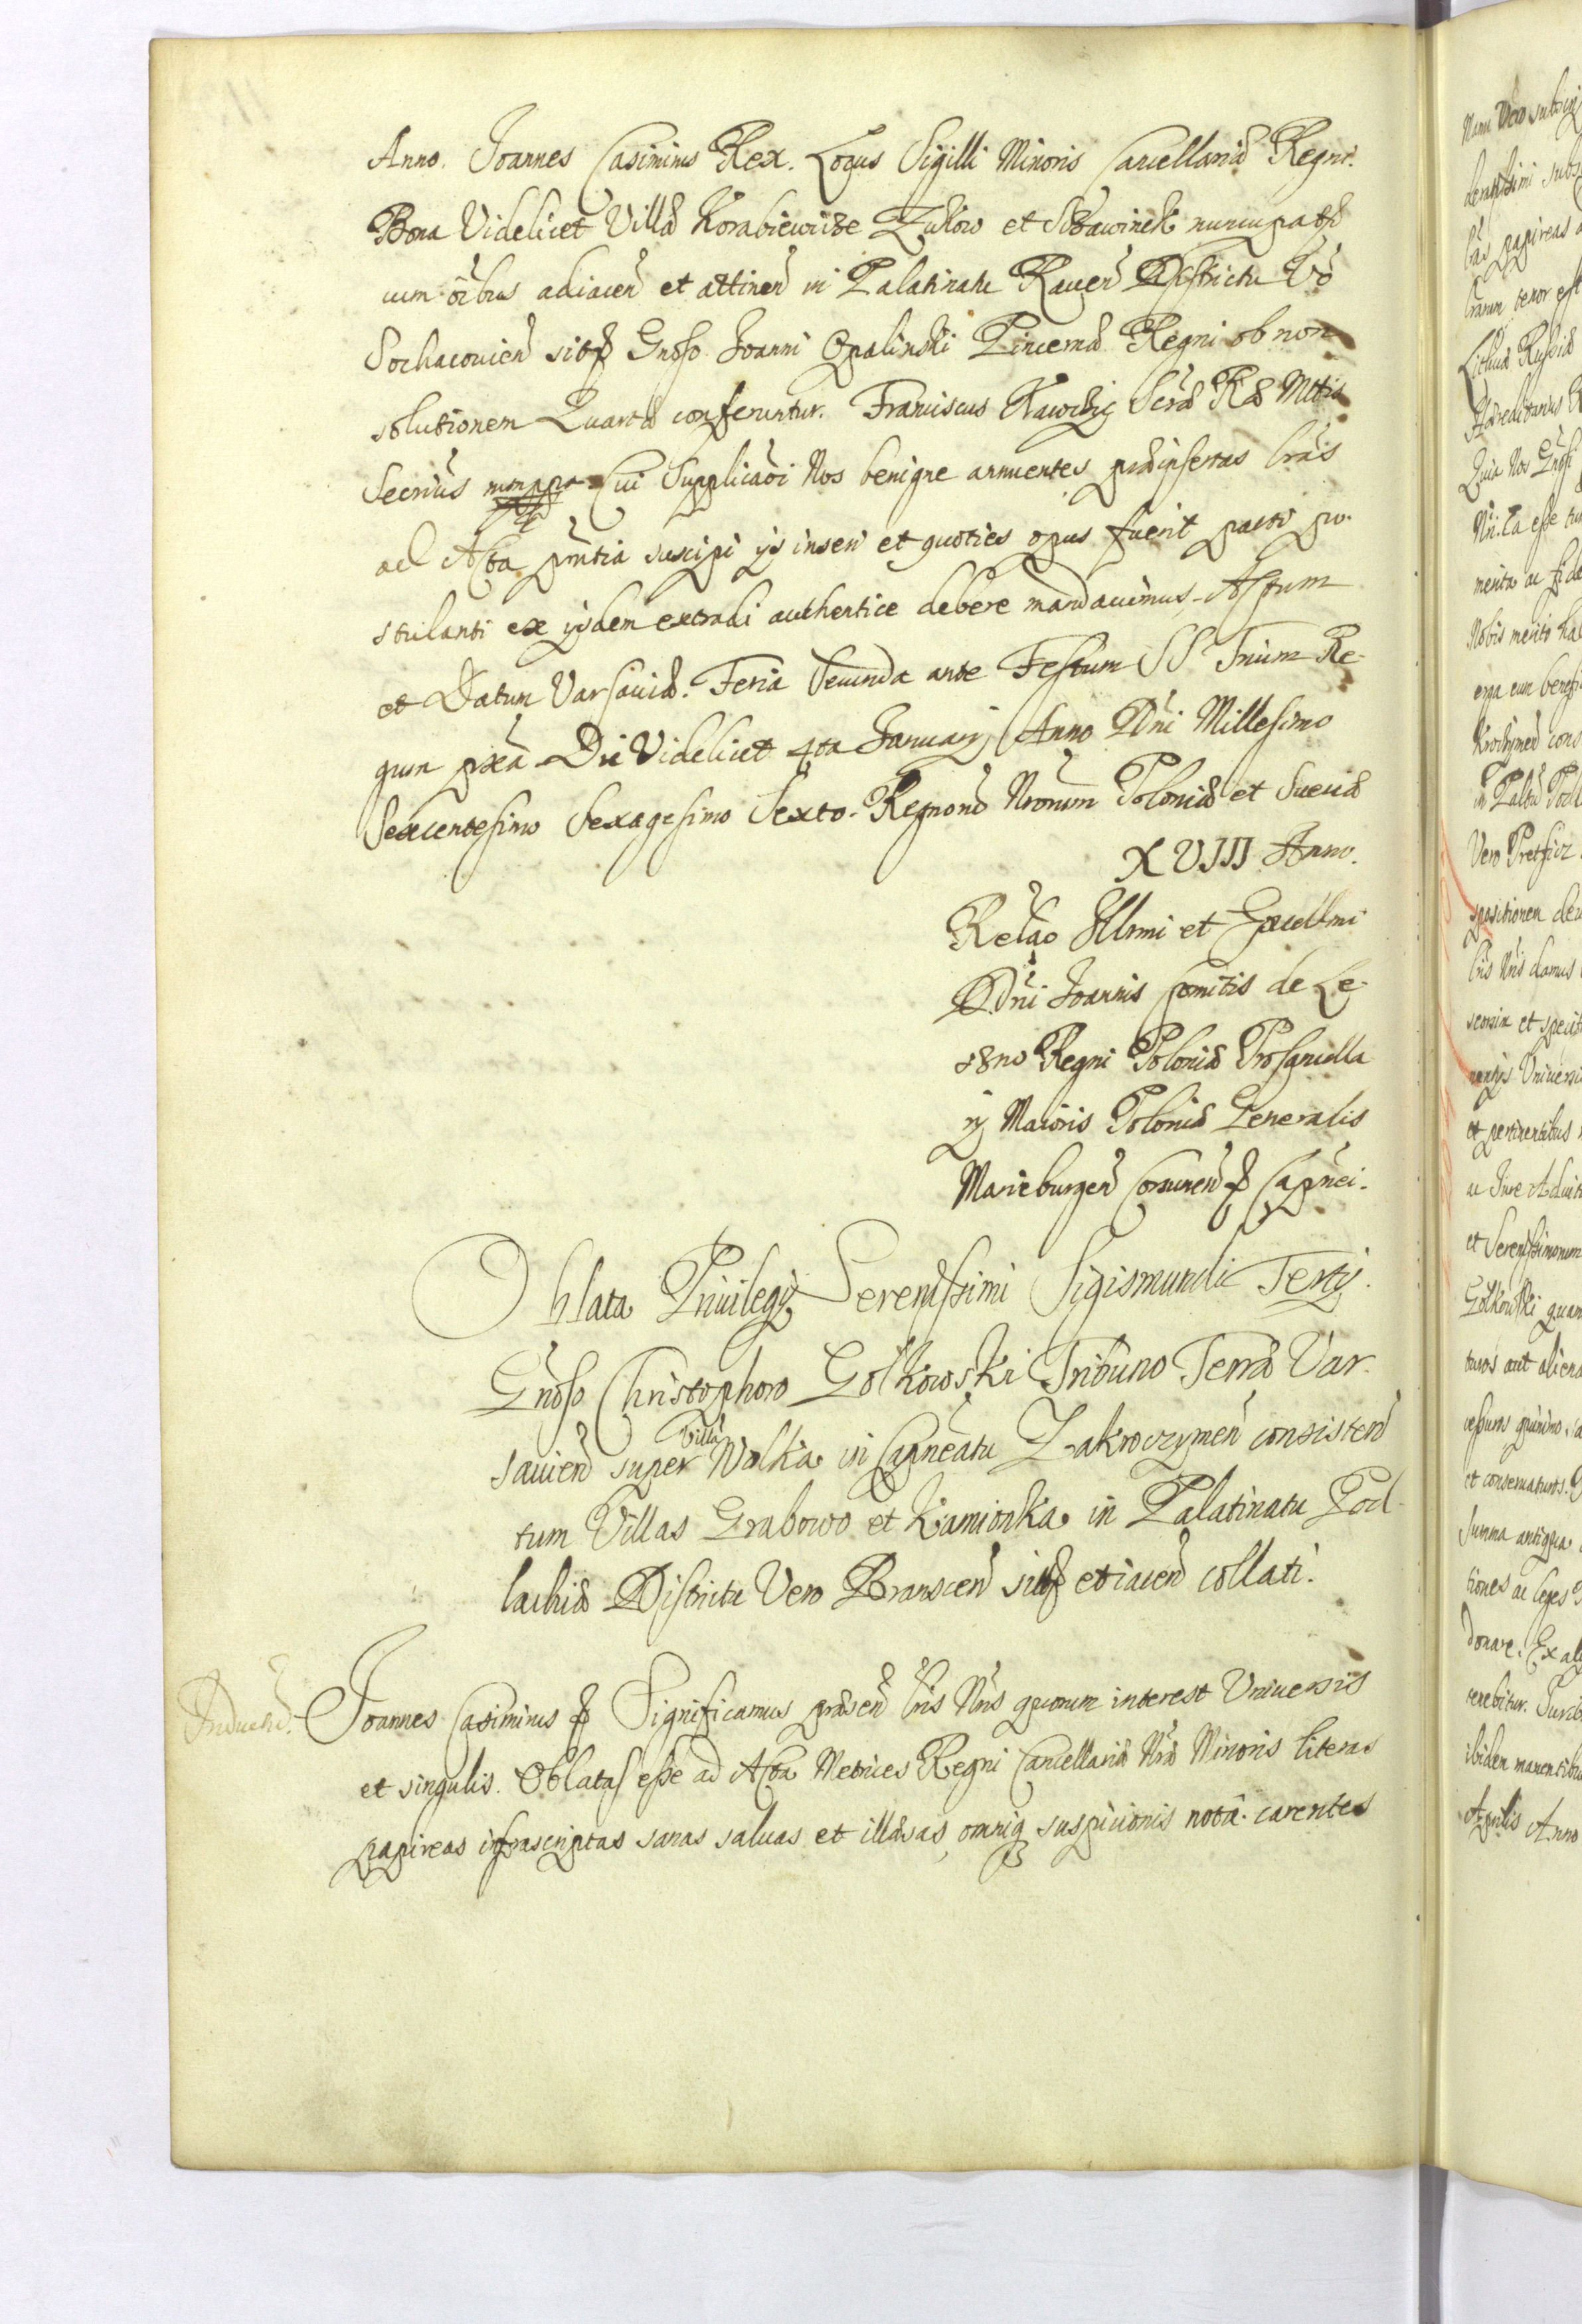 Anno. Joannes Casimirus Rex. Locus Sigilli Minoris Cancellariæ Regni.
Bona Videlicet Villæ Korabiewice Zukow et Stawinek nuncupatæ
cum õibus adiacen et attinen in Palatinatu Raven Districtu Vo
Sochacouien sit Gnoso Joanni Opalinski Pincernæ Regni ob non
solutionem Quartæ conferuntur. Franciscus Scræ Ræ Mttis
Secrius mppa Cui Supplicaoi Nos benigne annuentes præinsertas lras
ad Acta pntia suscipi ijs inseri et quoties opus fuerit parti po-
stulanti ex ijsdem extradi authentice debere mandauimus. Actum
et Datum Varsauiæ. Feria Secunda ante Festum SS Trium Re-
gum pxa Die Videlicet 4ta January Anno Dni Millesimo
Sexcentesimo Sexagesimo Sexto. Regnorũ Nrorum Poloniæ et Sueciæ
XVIII Anno.
Relao Illmi et Excellmi
Dñi Joannis Comitis de Le-
szno Regni Poloniæ Procancella
rij Maioris Poloniæ Generalis
Marieburgen Corsunen Capnei.
Oblata Priuilegij Serenissimi Sigismundi Tertij.
Gnoso Christophoro Golkowski Tribuno Terræ Var-
sauien super Villã Wolka in Capneatu Zakroczymen consisten
tum Villas Grabowo et Kamionka in Palatinatu Pod-
lachiæ Districtu Vero Branscen sit et iacen collati.
Inducend. Joannes Casimirus Significamus præsen lris Nris quorum interest Uniuersis
et singulis. Oblatas esse ad Acta Metrices Regni Cancellariæ Nræ Minoris literas
papireas infrascriptas sanas saluas et illæsas omniq suspicionis notâ carentes